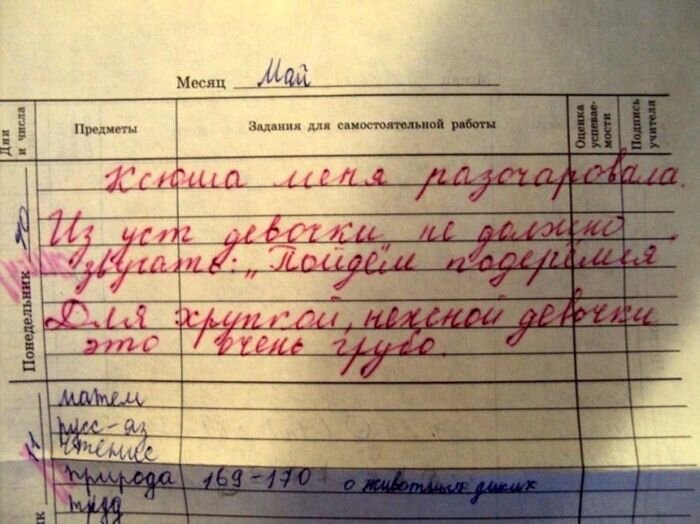 Месяц Май
Дни и числа
Предметы
Задания для самостоятельной работы
Оценка успеваемости
Подпись учителя
Понедельник
Ксюша меня разочаровала.
Из уст девочки не должно
звучать: „Пойдём подерёмся
Для хрупкой, нежной девочки
это очень грубо.
11
матем
русс-яз
чтение
природа 169-170 о животных диких
труд